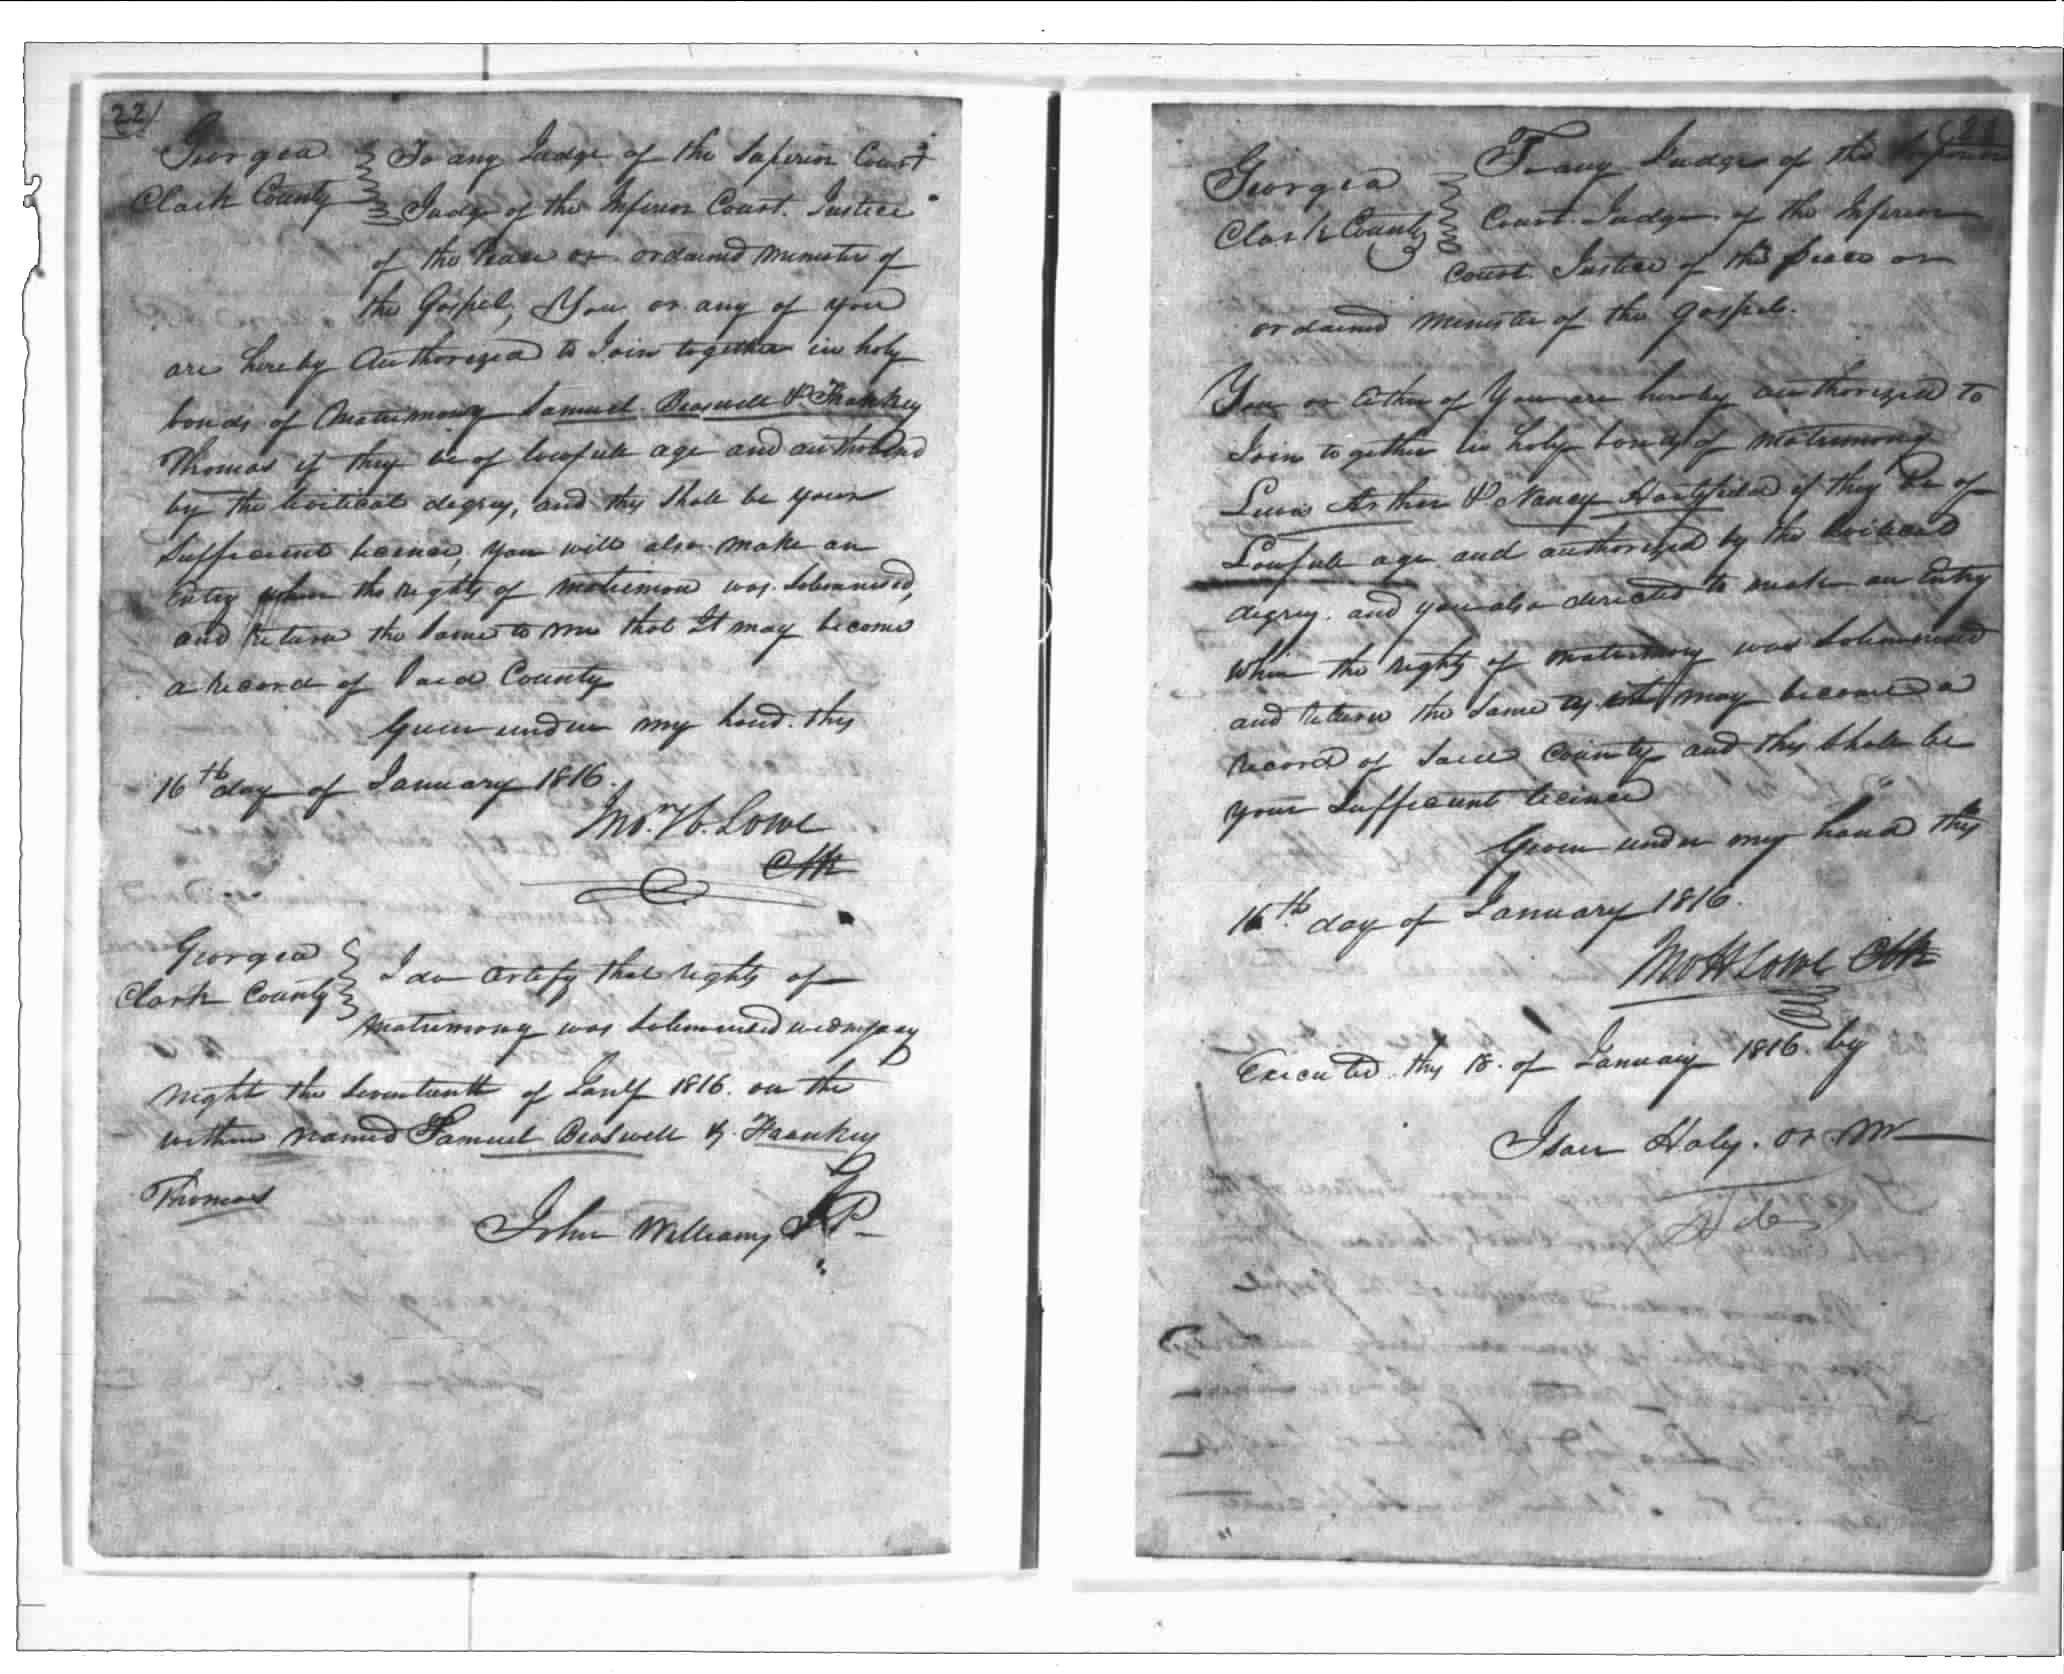 22
Georgia
Clark County
To any Judge of the Superior Court
Judge of the Inferior Court. Justice
of the Peace or ordained minister of
the Gospel, You or any of you
are hereby Authorized to Join together in holy
bonds of Matrimony Samuel Braswell & Frankey
Thomas if they be of lawfull age and authorized
by the levitical degrey, and this shall be your
Sufficient licence, you will also make an
Entry when the rights of matrimony was Solemnised,
and Return the Same to me that It may become
a Record of Said County
Given under my hand. this
16th day of January 1816.
Jno. H. Lowe
Clk
Georgia
Clark County
I do certify that rights of
Matrimony was Solemnised wednesday
night the Seventeenth of Jany 1816. on the
within named Samuel Braswell & Frankey
Thomas
John Williams JP
Georgia
Clark County
To any Judge of the Superior
Court. Judge of the Inferior
Court Justice of the peace or
ordained minister of the gospel.
You or Either of You are hereby authorized to
Join together in holy bonds of matrimony
Lewis Arther & Nancy Hartsfield if they Be of
Lawfull age and authorized by the leviticel
degrey. and you also directed to make an Entry
When the rights of matrimony was Solemnised
and Return the Same as it may become a
Record of Said County and this Shall be
your Sufficient licince
Given under my hand this
16th. day of January 1816.
Jno H Lowe Clk
Executed this 18. of January 1816. by